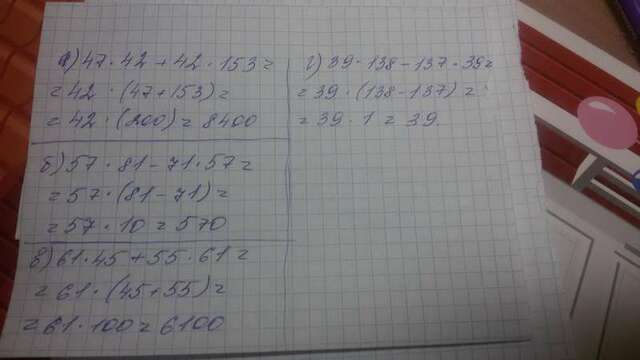 а) 47·42+42·153=
=42·(47+153)=
=42·(200)=8400
б) 57·81-71·57=
=57·(81-71)=
=57·10=570
в) 61·45+55·61=
=61·(45+55)=
=61·100=6100
г) 39·138-137·39=
=39·(138-137)=
=39·1=39.